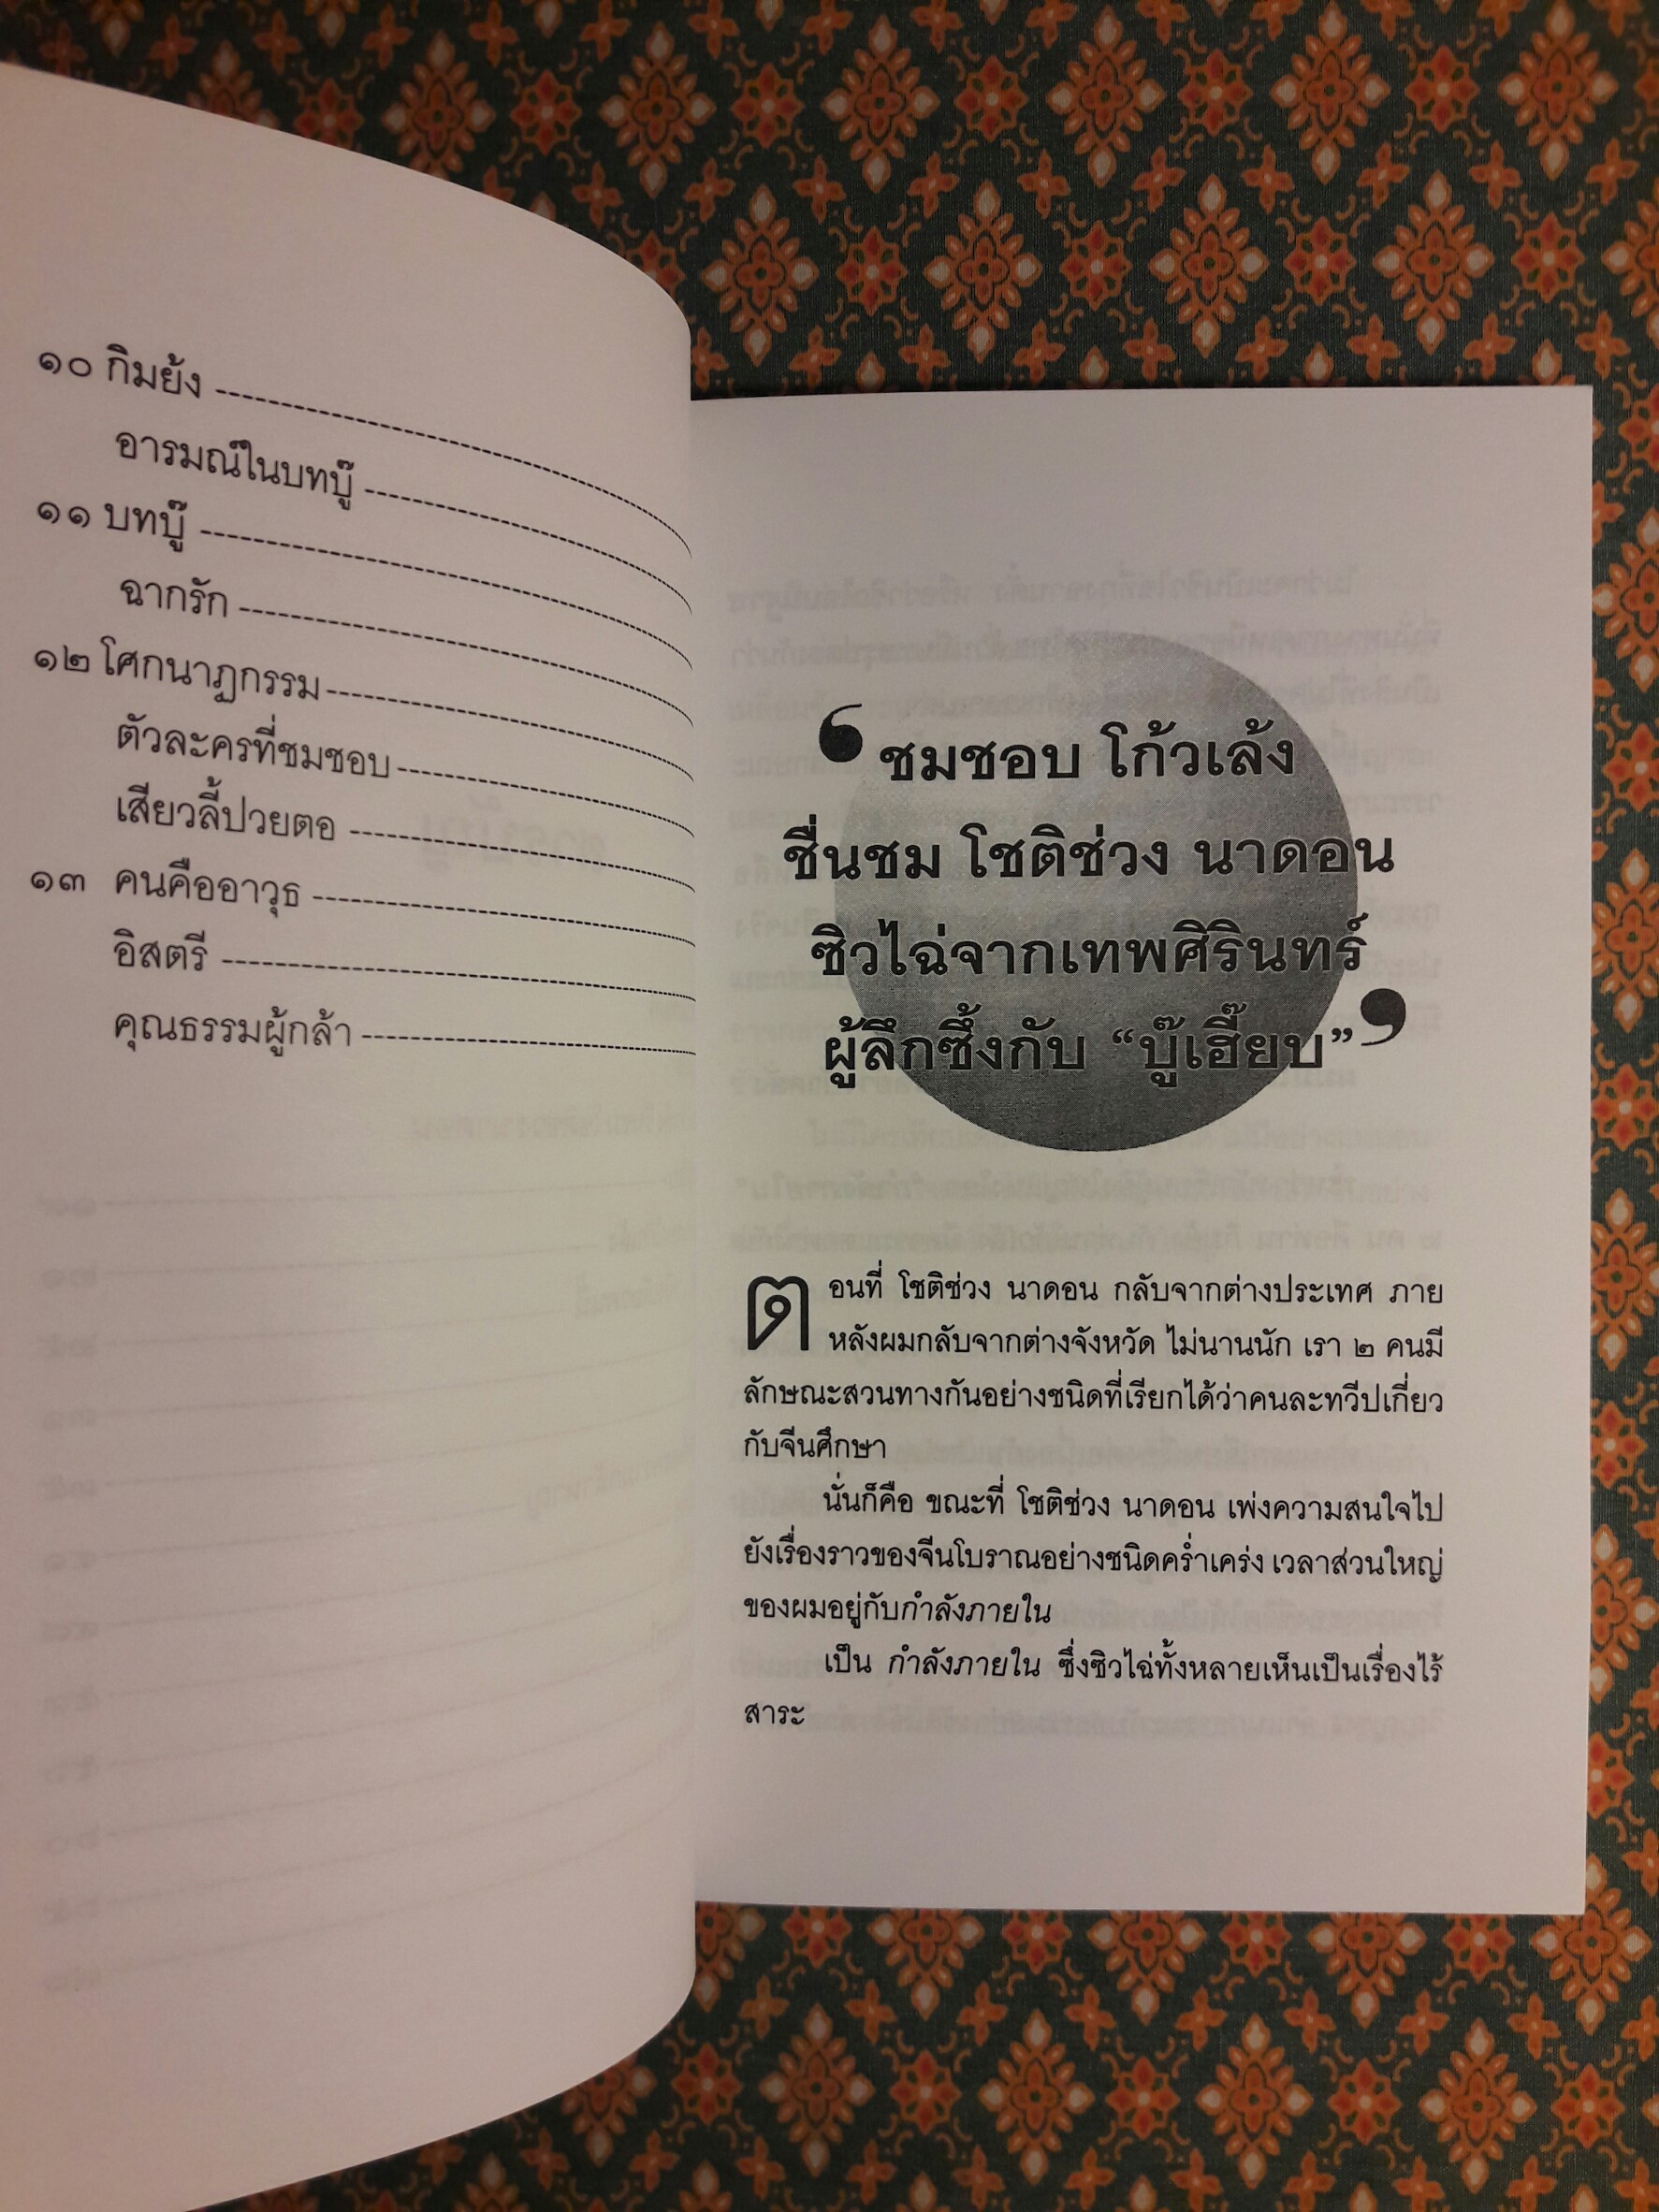 ๑๐ กิมย้ง
อารมณ์ในบทบู๊
๑๑ บทบู๊
ฉากรัก
๑๒ โศกนาฏกรรม
ตัวละครที่ชมชอบ
เสียวลี้ปวยตอ
๑๓ คนคืออาวุธ
อิสตรี
คุณธรรมผู้กล้า
‘ชมชอบ โก้วเล้ง
ชื่นชม โชติช่วง นาดอน
ซิวไฉ่จากเทพศิรินทร์
ผู้ลึกซึ้งกับ “บู๊เฮี๊ยบ”’
ตอนที่ โชติช่วง นาดอน กลับจากต่างประเทศ ภาย
หลังผมกลับจากต่างจังหวัด ไม่นานนัก เรา ๒ คนมี
ลักษณะสวนทางกันอย่างชนิดที่เรียกได้ว่าคนละทวีปเกี่ยว
กับจีนศึกษา
นั่นก็คือ ขณะที่ โชติช่วง นาดอน เพ่งความสนใจไป
ยังเรื่องราวของจีนโบราณอย่างชนิดคร่ำเคร่ง เวลาส่วนใหญ่
ของผมอยู่กับกำลังภายใน
เป็น กำลังภายใน ซึ่งซิวไฉ่ทั้งหลายเห็นเป็นเรื่องไร้
สาระ